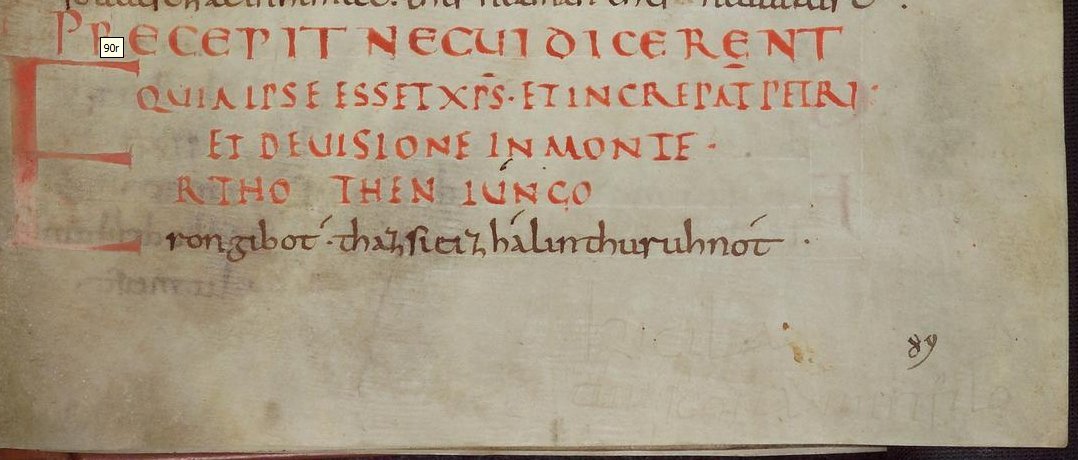 PRECEPIT NE CUI DICERENT
90r
QUIA IPSE ESSET XPS· ET INCREPAT PETRI:
ET DE UISIONE IN MONTE ·
E RTHO THEN IUNGO
ron gibot· thaz sie iz hálin thuruhnot ·
89